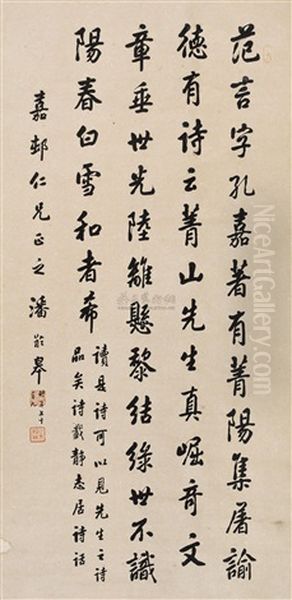 范言字孔嘉著有菁陽集屠諭
德有詩云菁山先生真崛奇文
章垂世光陸離懸黎結綠世不識
陽春白雪和者希
讀是詩可以見先生之詩
品矣詩載靜志居詩話
嘉邨仁兄正之 潘齡皋
www.NiceArtGallery.com